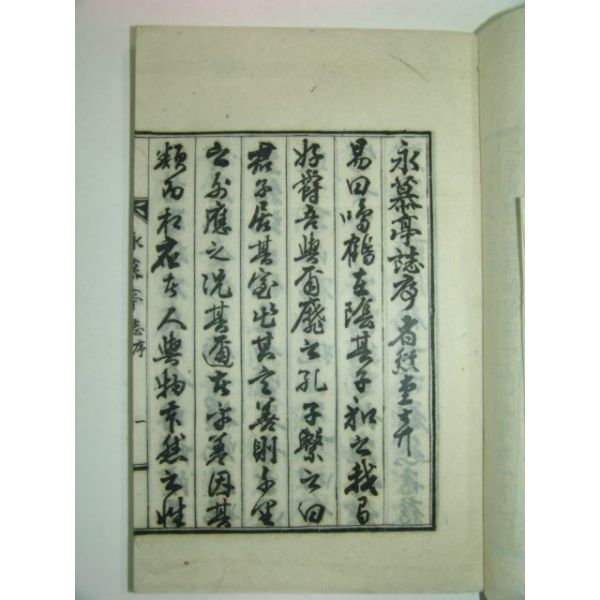 永慕亭誌序
易曰鳴鶴在陰其子和之我有
好爵吾與爾靡之孔子繫之曰
君子居其室出其言善則千里
之外應之況其邇者乎蓋因其
類而相者人與物然之性
永慕亭誌序 一